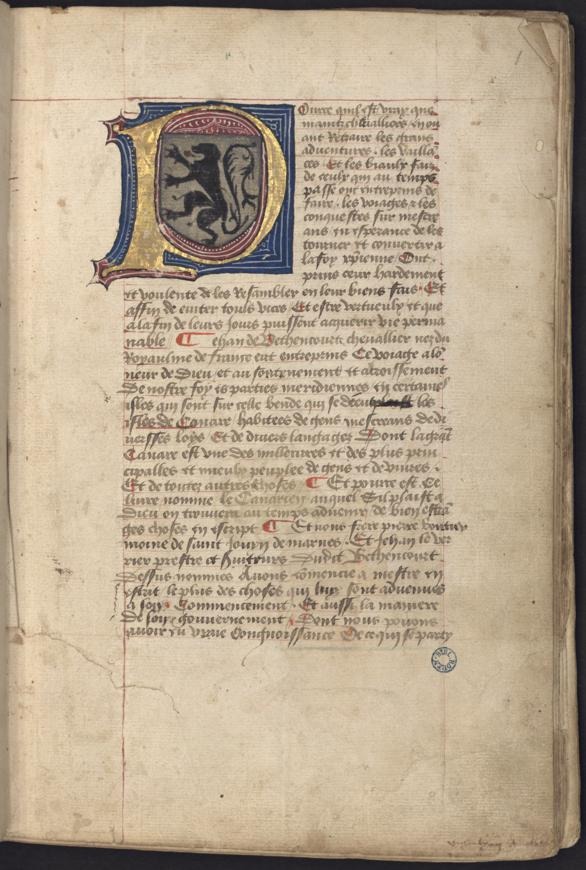 Pource quil est vray que
maintz chevalliers en oy
ant Retraire les grans
adventures . les vaillā
ces Et les biaulx faiz
de ceulx qui au temps
passe ont entreprins de
faire . les voiages & les
conquestes sur mescre
ans en esperance de les
tourner et convertir a
la foy xpienne Ont .
prins ceur hardement
et voulente de les Resambler en leur biens fais Et
affin de eviter touls vices Et estre vertueulx et que
a la fin de leurs Jours puissent acquerir vie perma
nable Jehan de Bethencourt chevallier nez du
Royaulme de france eut entreprins Ce voiage a lō
neur de Dieu et au soustenement et acroissement
De nostre foy es parties meridiennes en certaines
isles qui sont sur celle bende qui se les
isles de Canare habitees de gens mescreans de di
versses loys Et de divers langages Dont la grāt
Canare est une des millieures et des plus prin
cipalles et mieulx peuplee de gens et de vivres .
Et de toutez autres choses Et pource est Ce
livre nomme le Canarien auquel Sil plaist a
Dieu on trouvera au temps advenir de bien estrā
ges choses en escript Et nous frere pierre bontier
moine de saint Jouyn de marnes . Et Jehan le ver
rier prestre et Dudit Bethencourt
Dessus nommes Avons comencie a mestre en
escript le plus des choses qui luy sont advenues
a son Commencement . Et aussi la maniere
de son gouvernement . Dont nous povons
avoir eu vraie Congnoissance De ce qui se party